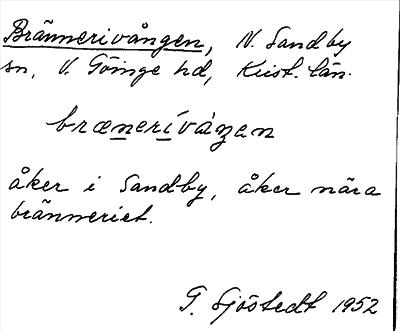 Brännerivången, N. Sandby
sn, V. Göinge hd, Krist. län.
brænerivåŋen
åker i Sandby, åker nära
bränneriet.
G. Sjöstedt 1952